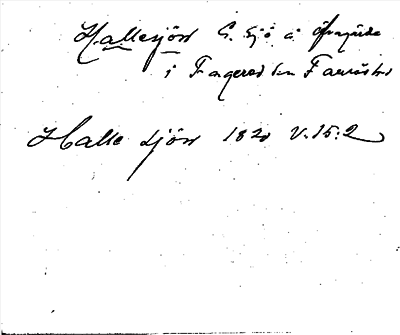 Hallesjön G. sjö å
i Fagered sn Faurås hd
Halle sjön 1820 V. 15:2